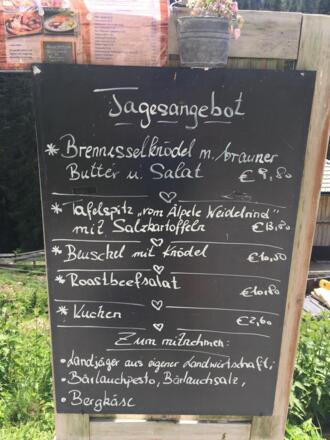 Tagesangebot
* Brennusselknödel m. brauner
Butter u. Salat € 9,80
* Tafelspitz "vom Älpele Weidelrind"
mit Salzkartoffeln € 13,80
* Beuschel mit Knödel € 10,50
* Roastbeefsalat € 10,80
* Kuchen € 2,60
Zum mitnehmen:
• Landjäger aus eigener Landwirtschaft,
• Bärlauchpesto, Bärlauchsalz,
• Bergkäse